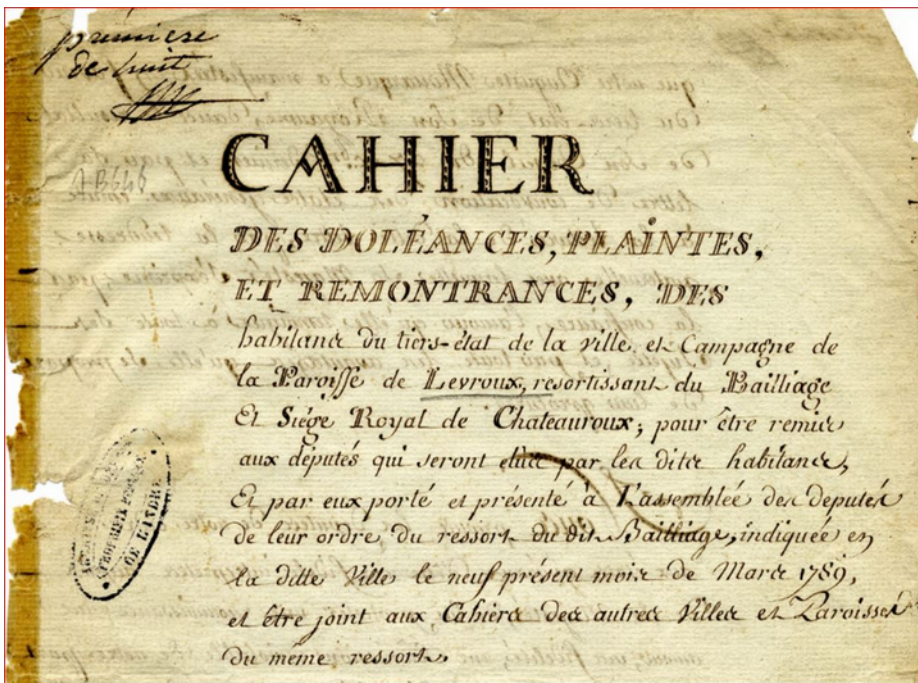 première
de huit
CAHIER
DES DOLÉANCES, PLAINTES,
ET REMONTRANCES, DES
habitans du tiers-état de la ville et Campagne de
la Paroisse de Levroux, resortissant du Bailliage
Et Siége Royal de Chateauroux; pour être remis
aux députés qui seront élus par les dits habitans,
Et par eux porté et présenté à L'assemblée des députés
de leur ordre du ressort du dit Bailliage, indiquée en
la ditte Ville le neuf présent mois de Mars 1789,
et être joint aux Cahiers des autres Villes et Paroisses
du même ressort.
DE L'INDRE